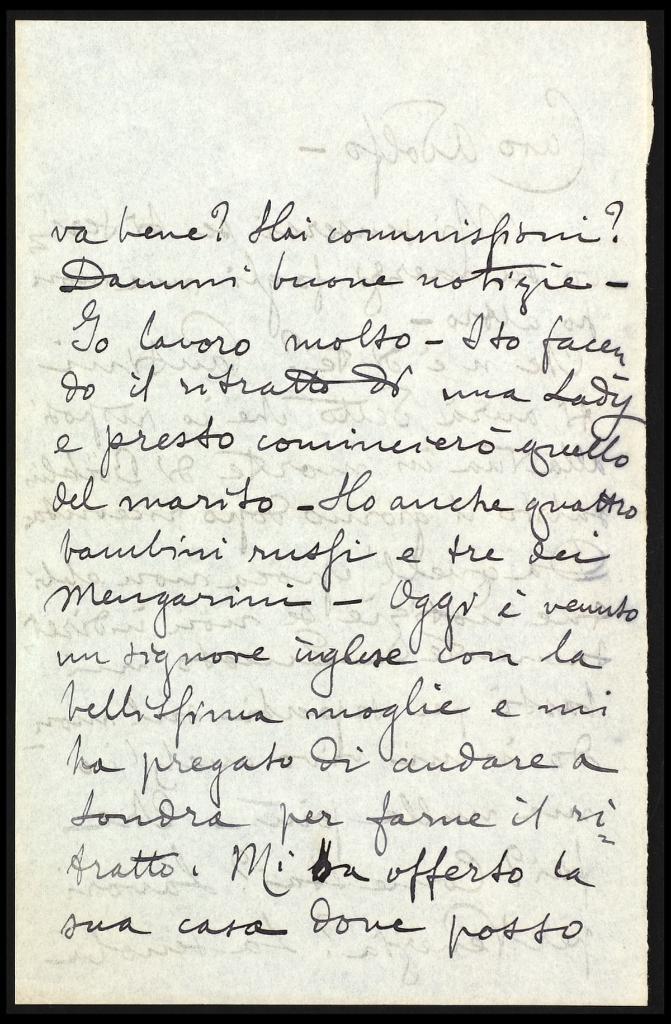 va bene? Hai commissioni?
Dammi buone notizie –
Io lavoro molto – Sto facen
do il ritratto di una Lady
e presto comincierò quello
del marito – Ho anche quattro
bambini russi e tre dei
Mengarini – Oggi è venuto
un signore inglese con la
bellissima moglie e mi
ha pregato di andare a
Londra per farne il ri=
tratto. Mi ha offerto la
sua casa dove posso